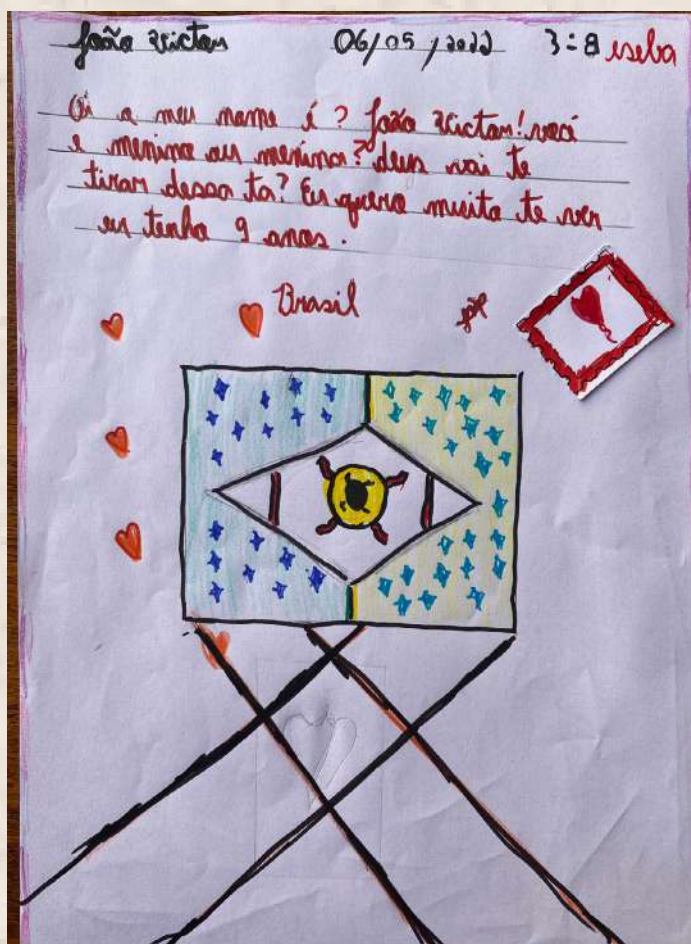 João Victor 06/05/2022 3=8 eseba
Oi o meu nome é? João Victor! você
e menino ou menina? deus vai te
tirar dessa ta? Eu quero muito te ver
eu tenho 9 anos.
Brasil